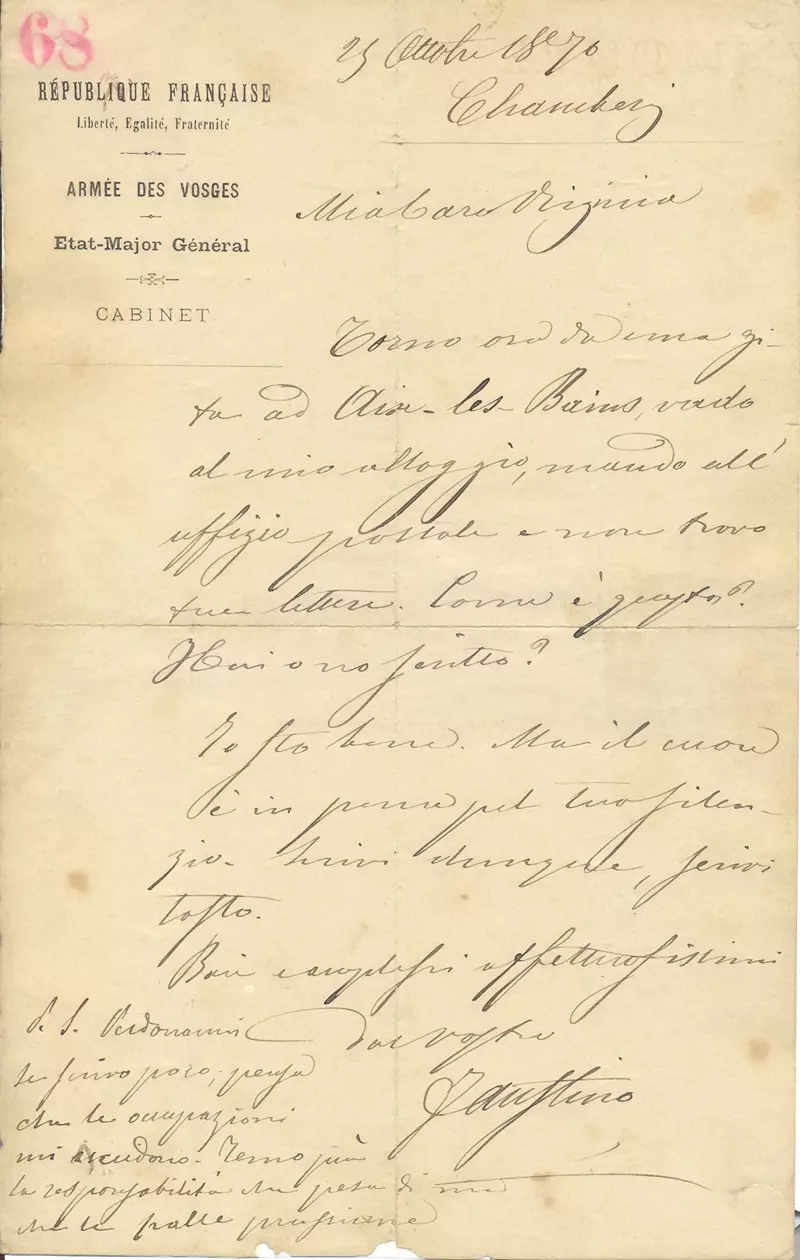 68
RÉPUBLIQUE FRANÇAISE
Liberté, Egalité, Fraternité
ARMÉE DES VOSGES
Etat-Major Général
CABINET
25 Ottobre 1870
Chambery
Mia Cara Virginia
Torno ora da una gi-
ta ad Aix-les-Bains, vado
al mio alloggio, mando all'
uffizio postale e non trovo
tue lettere. Come è questo?
Hai o no scritto?
Io sto bene. Ma il cuore
è in pena pel tuo silen-
zio. Scrivi dunque, scrivi
tosto.
Baci e amplessi affettuosissimi
dal vostro
Faustino
P. S. Perdonami
se scrivo poco, pensa
che le occupazioni
mi uccidono. Temo più
la responsabilità che pesa di me
che le palle prussiane